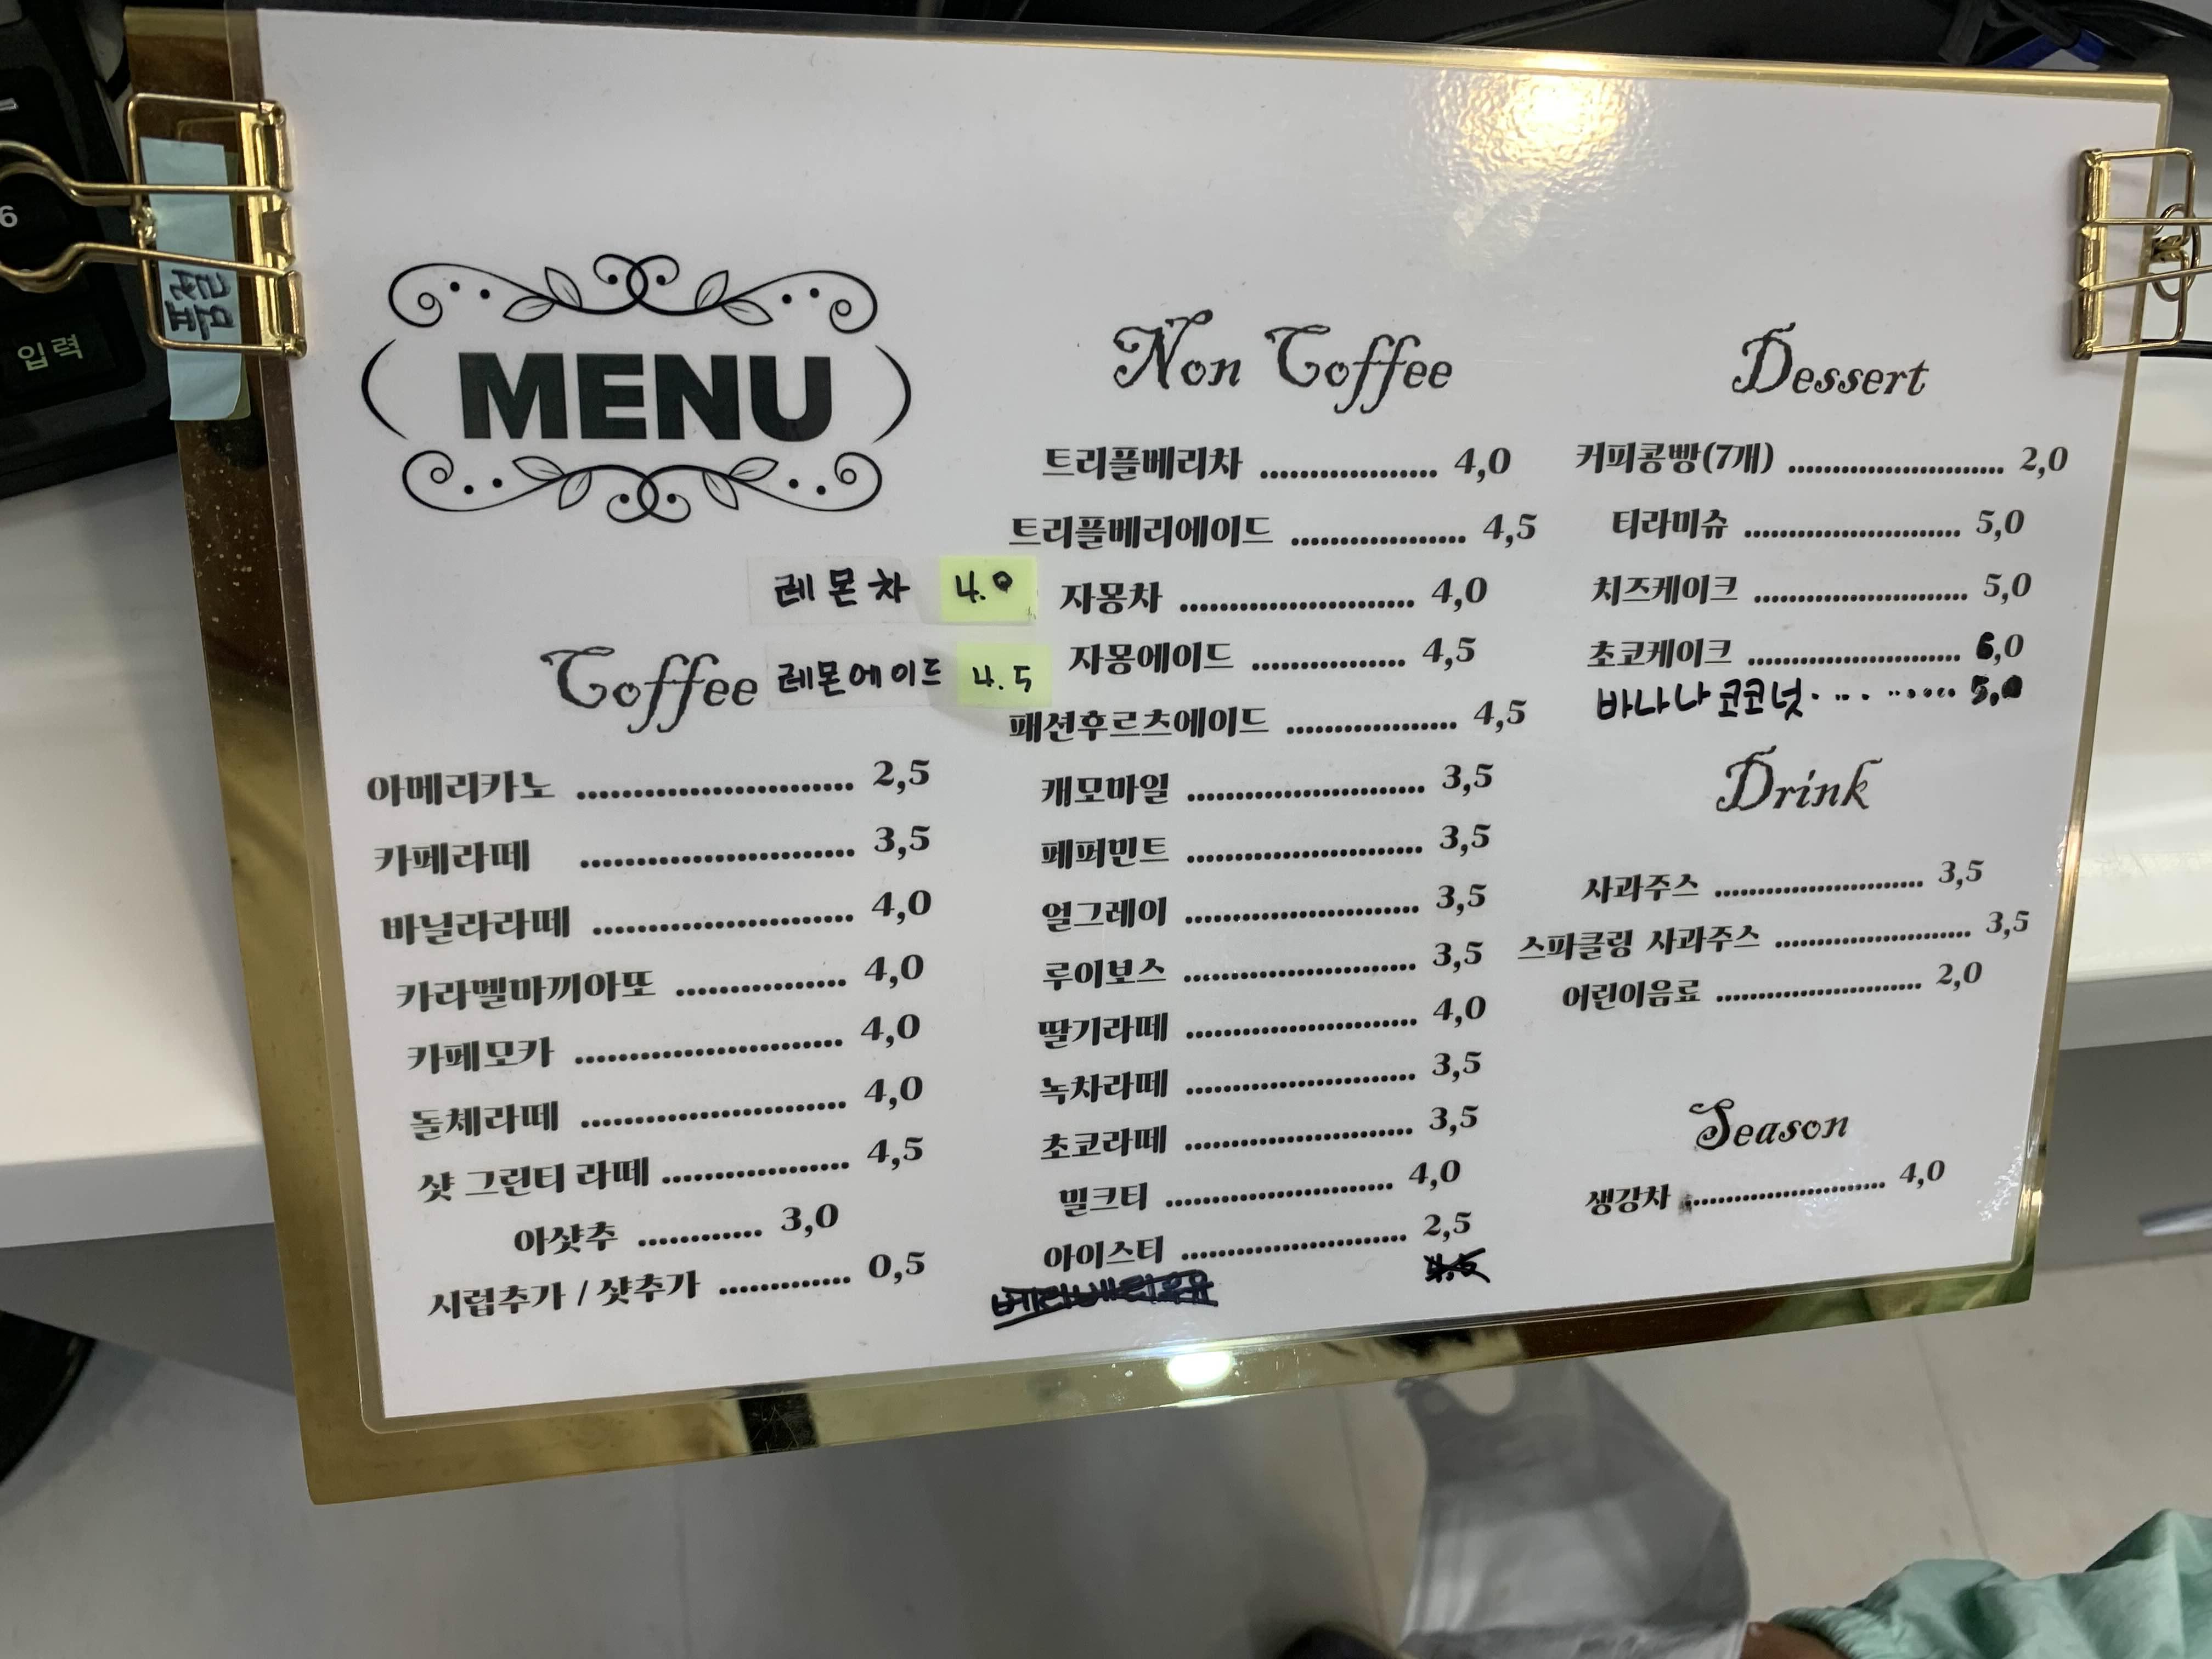 6
입력
품절
MENU
레몬차 4.0
Coffee
레몬에이드 4.5
아메리카노 ........................ 2,5
카페라떼 ........................ 3,5
바닐라라떼 ........................ 4,0
카라멜마끼아또 ................ 4,0
카페모카 ........................ 4,0
돌체라떼 ........................ 4,0
샷 그린티 라떼 ................. 4,5
아샷추 ............ 3,0
시럽추가 / 샷추가 ............. 0,5
Non Coffee
트리플베리차 ................. 4,0
트리플베리에이드 ................. 4,5
자몽차 ........................ 4,0
자몽에이드 ................ 4,5
패션후르츠에이드 ................. 4,5
캐모마일 ........................ 3,5
페퍼민트 ........................ 3,5
얼그레이 ........................ 3,5
루이보스 ........................ 3,5
딸기라떼 ........................ 4,0
녹차라떼 ........................ 3,5
초코라떼 ........................ 3,5
밀크티 ........................ 4,0
아이스티 ........................ 2,5
Dessert
커피콩빵(7개) ........................ 2,0
티라미슈 ........................ 5,0
치즈케이크 ........................ 5,0
초코케이크 ........................ 6,0
바나나 코코넛 ........ 5,0
Drink
사과주스 ........................ 3,5
스파클링 사과주스 ...................... 3,5
어린이음료 ...................... 2,0
Season
생강차 ...................... 4,0